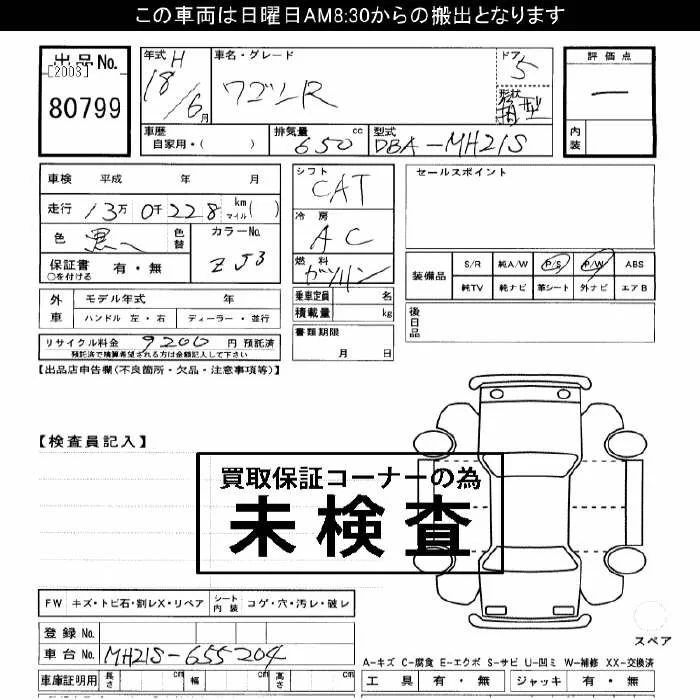 この車両は日曜日AM8:30からの搬出となります
出品No.
[2003]
80799
年式 H 18/6月
車名・グレード ワゴンR
ドア 5
形状 箱型
評価点 —
内装
車歴 自家用・( )
排気量 650 cc
型式 DBA-MH21S
車検 平成 年 月
走行 13万0千228 km マイル( )
色 黒 色替
カラーNo. ZJ3
保証書 有・無
○を付ける
シフト CAT
冷房 AC
燃料 ガソリン
乗車定員 名
積載量 kg
書類期限 月 日
セールスポイント
装備品 S/R 純A/W P/S P/W ABS
純TV 純ナビ 革シート 外ナビ エアB
後日品
外車 モデル年式 年
ハンドル 左・右 ディーラー・並行
リサイクル料金 9200 円 預託済
預託済で精算希望される方は金額記入して下さい
【出品店申告欄(不良箇所・欠品・注意事項等)】
【検査員記入】
買取保証コーナーの為
未検査
FW キズ・トビ石・割レX・リペア
シート内装 コゲ・穴・汚レ・破レ
登録No.
車台No. MH21S-655204
車庫証明用 長さ cm 幅 cm 高さ cm
スペア
A-キズ C-腐食 E-エクボ S-サビ U-凹ミ W-補修 XX-交換済
工具 有・無 ジャッキ 有・無